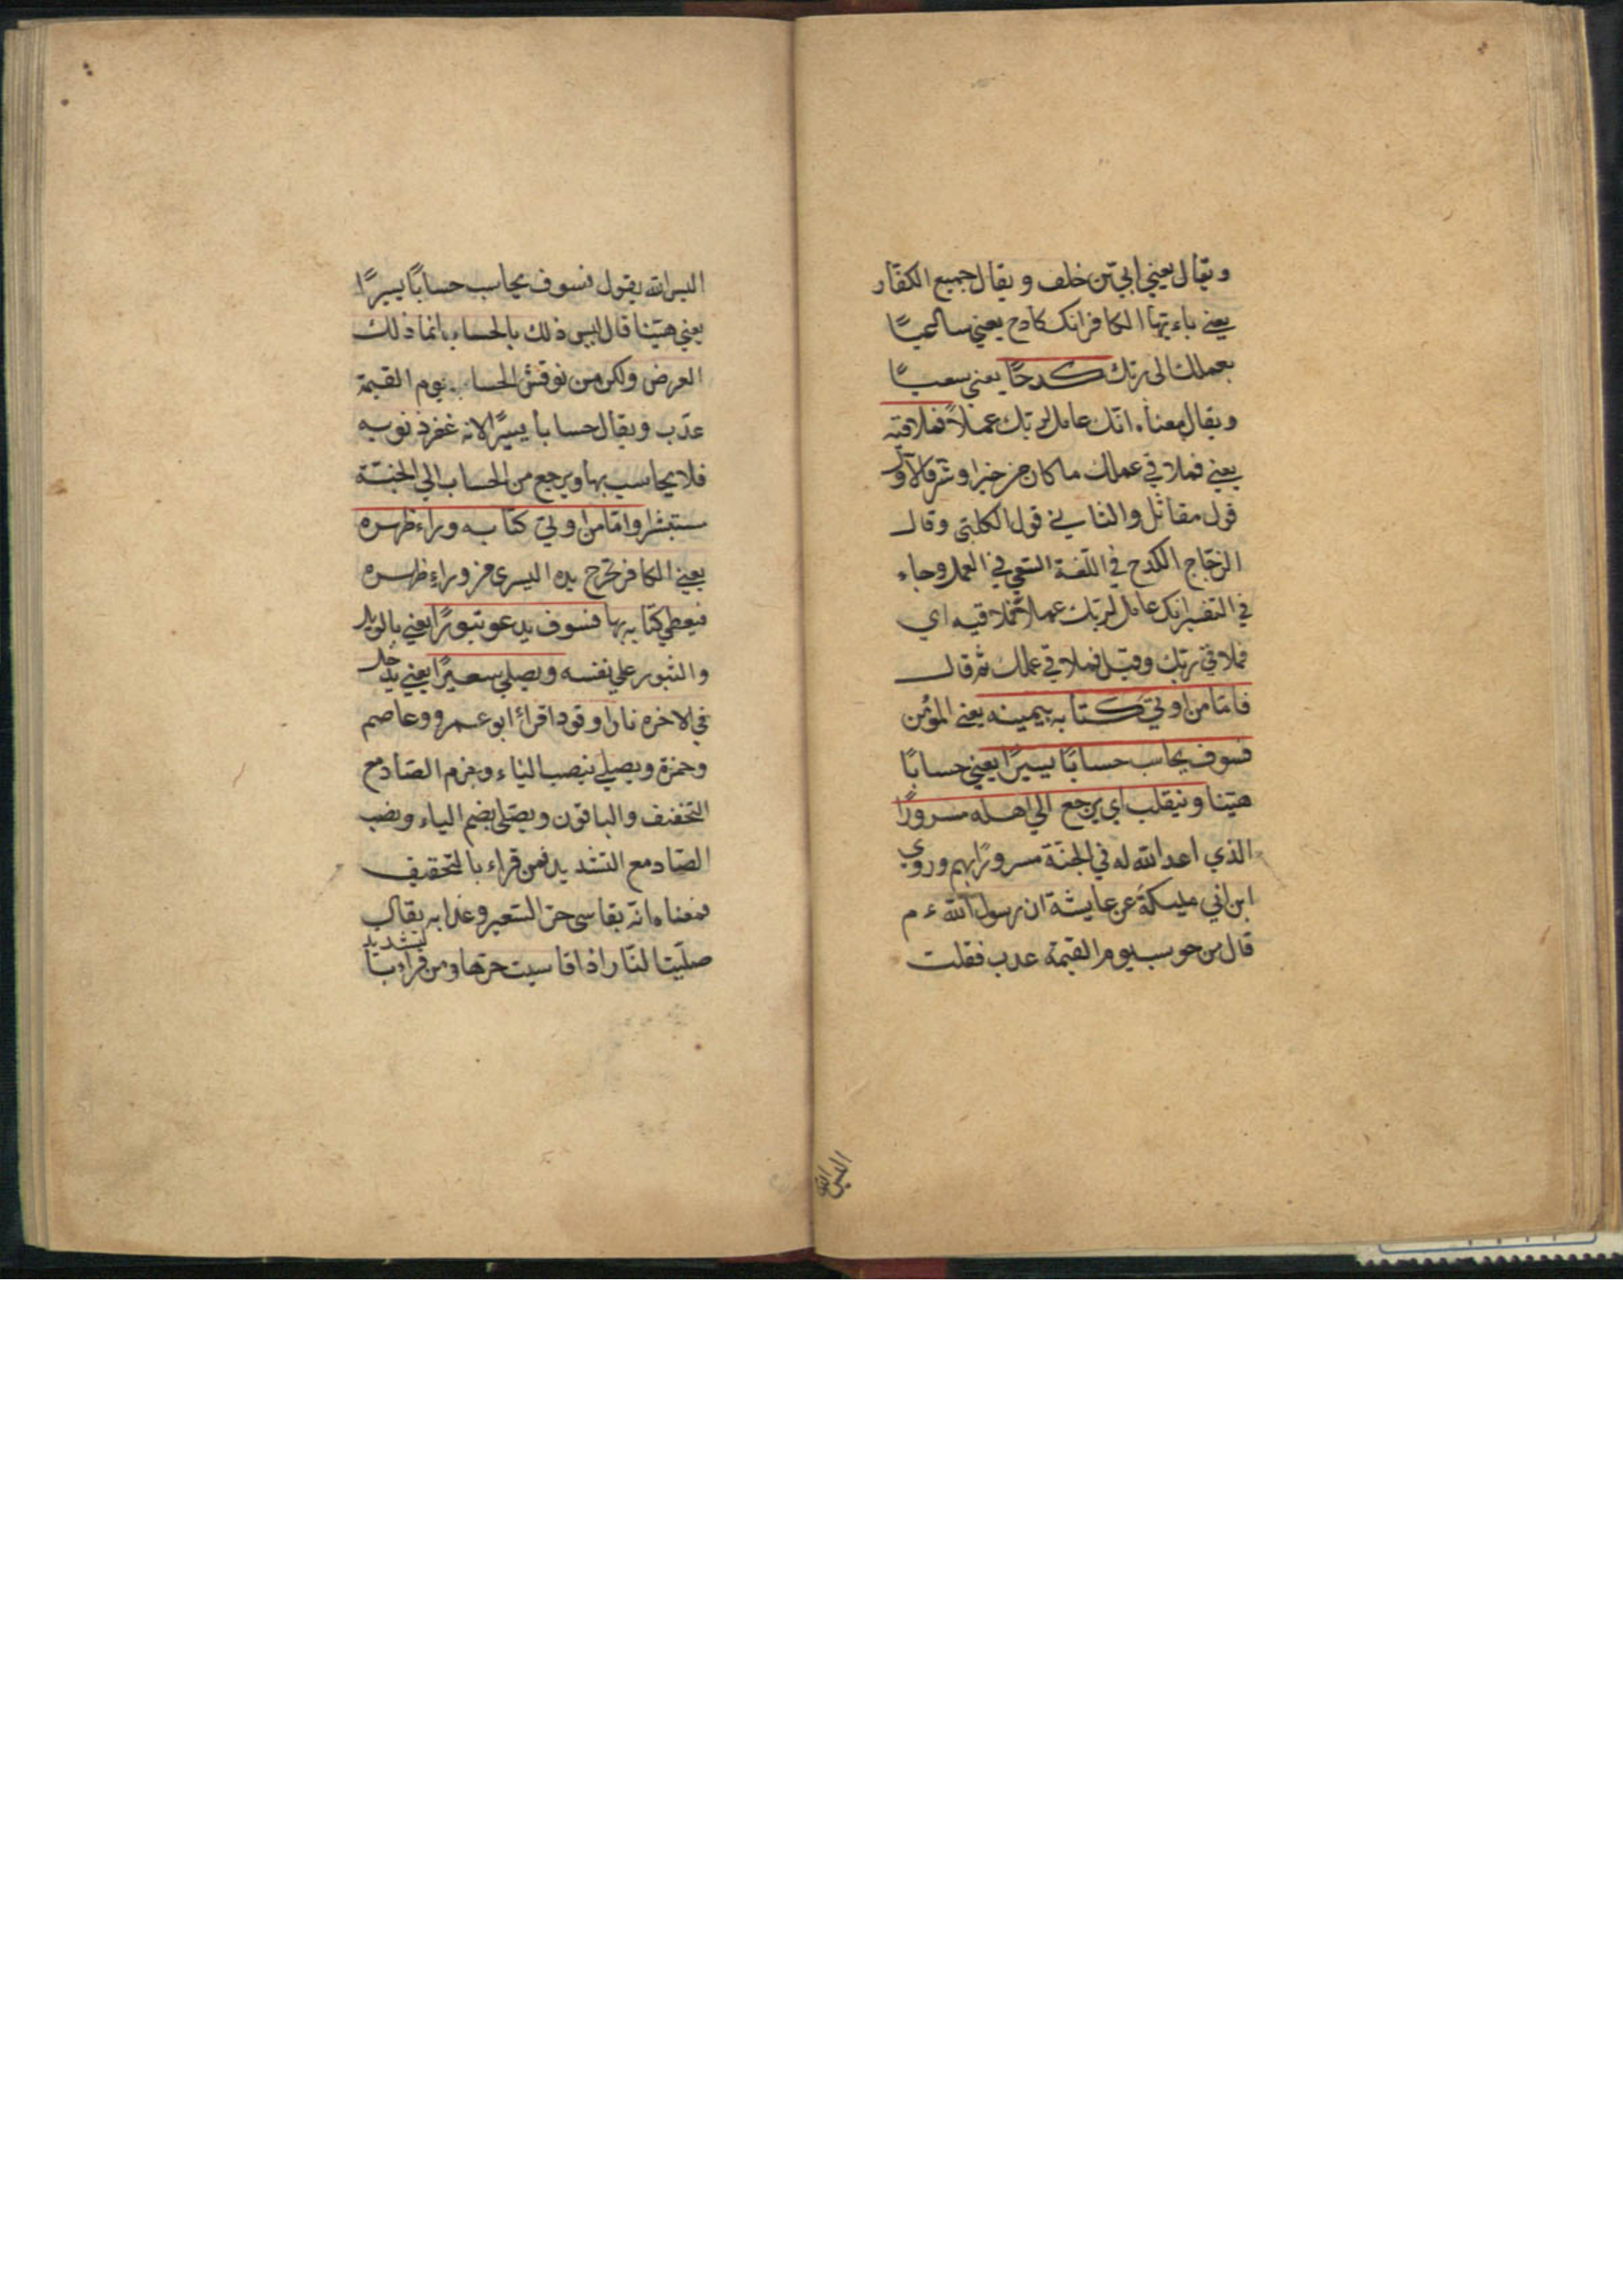 ويقال يعني ابي بن خلف ويقال جميع الكفار
يعني ياء يتها الكافر انك كادح يعني ساعيا
بعملك الى ربك كدحًا يعني سعيًا
ويقال معناه انك عامل لربك عملاً فملاقيه
يعني فملاقي عملك ما كان من خير او شر فالاول
قول مقاتل والثاني قول الكلبي وقال
الزجاج الكدح في اللغة السعي في العمل وجاء
في التفسير انك عامل لربك عملاً فملاقيه اي
فملاقي ربك وقيل فملاقي عملك ثم قال
فامّا من اوتي كتابه بيمينه يعني المؤمن
فسوف يحاسب حسابًا يسيرًا يعني حسابًا
هيّنا وينقلب اي يرجع الي اهله مسرورًا
الذي اعد الله له في الجنة مسرورًا بهم وروي
ابن ابي مليكة عن عايشة ان رسول الله ءم
قال من حوسب يوم القيمة عذب فقلت
اليس الله
اليس الله يقول فسوف يحاسب حسابًا يسيرًا
يعني هيّنا قال ليس ذلك بالحساب انما ذلك
العرض ولكن من نوقش الحساب يوم القيمة
عذب ويقال حسابا يسيرًا لانه غفر ذنوبه
فلا يحاسب بها ويرجع من الحساب الي الجنة
مستبشرا وامّا من اوتي كتابه وراء ظهره
يعني الكافر تخرج يده اليسرى من وراء ظهره
فيعطي كتابه بها فسوف يدعو ثبورًا يعني بالويل
والثبور علي نفسه ويصلي سعيرًا يعني يدخل
في الاخره نارا وقودا قرأ ابو عمرو وعاصم
وحمزة ويصلي بنصب الياء وجزم الصاد مع
التخفيف والباقون ويصلي بضم الياء ونصب
الصاد مع التشديد فمن قراء بالتخفيف
فمعناه انه يقاسى حر السعير وعذابه يقال
صليت النار اذا قاسيت حرها ومن قراء بالتشديد